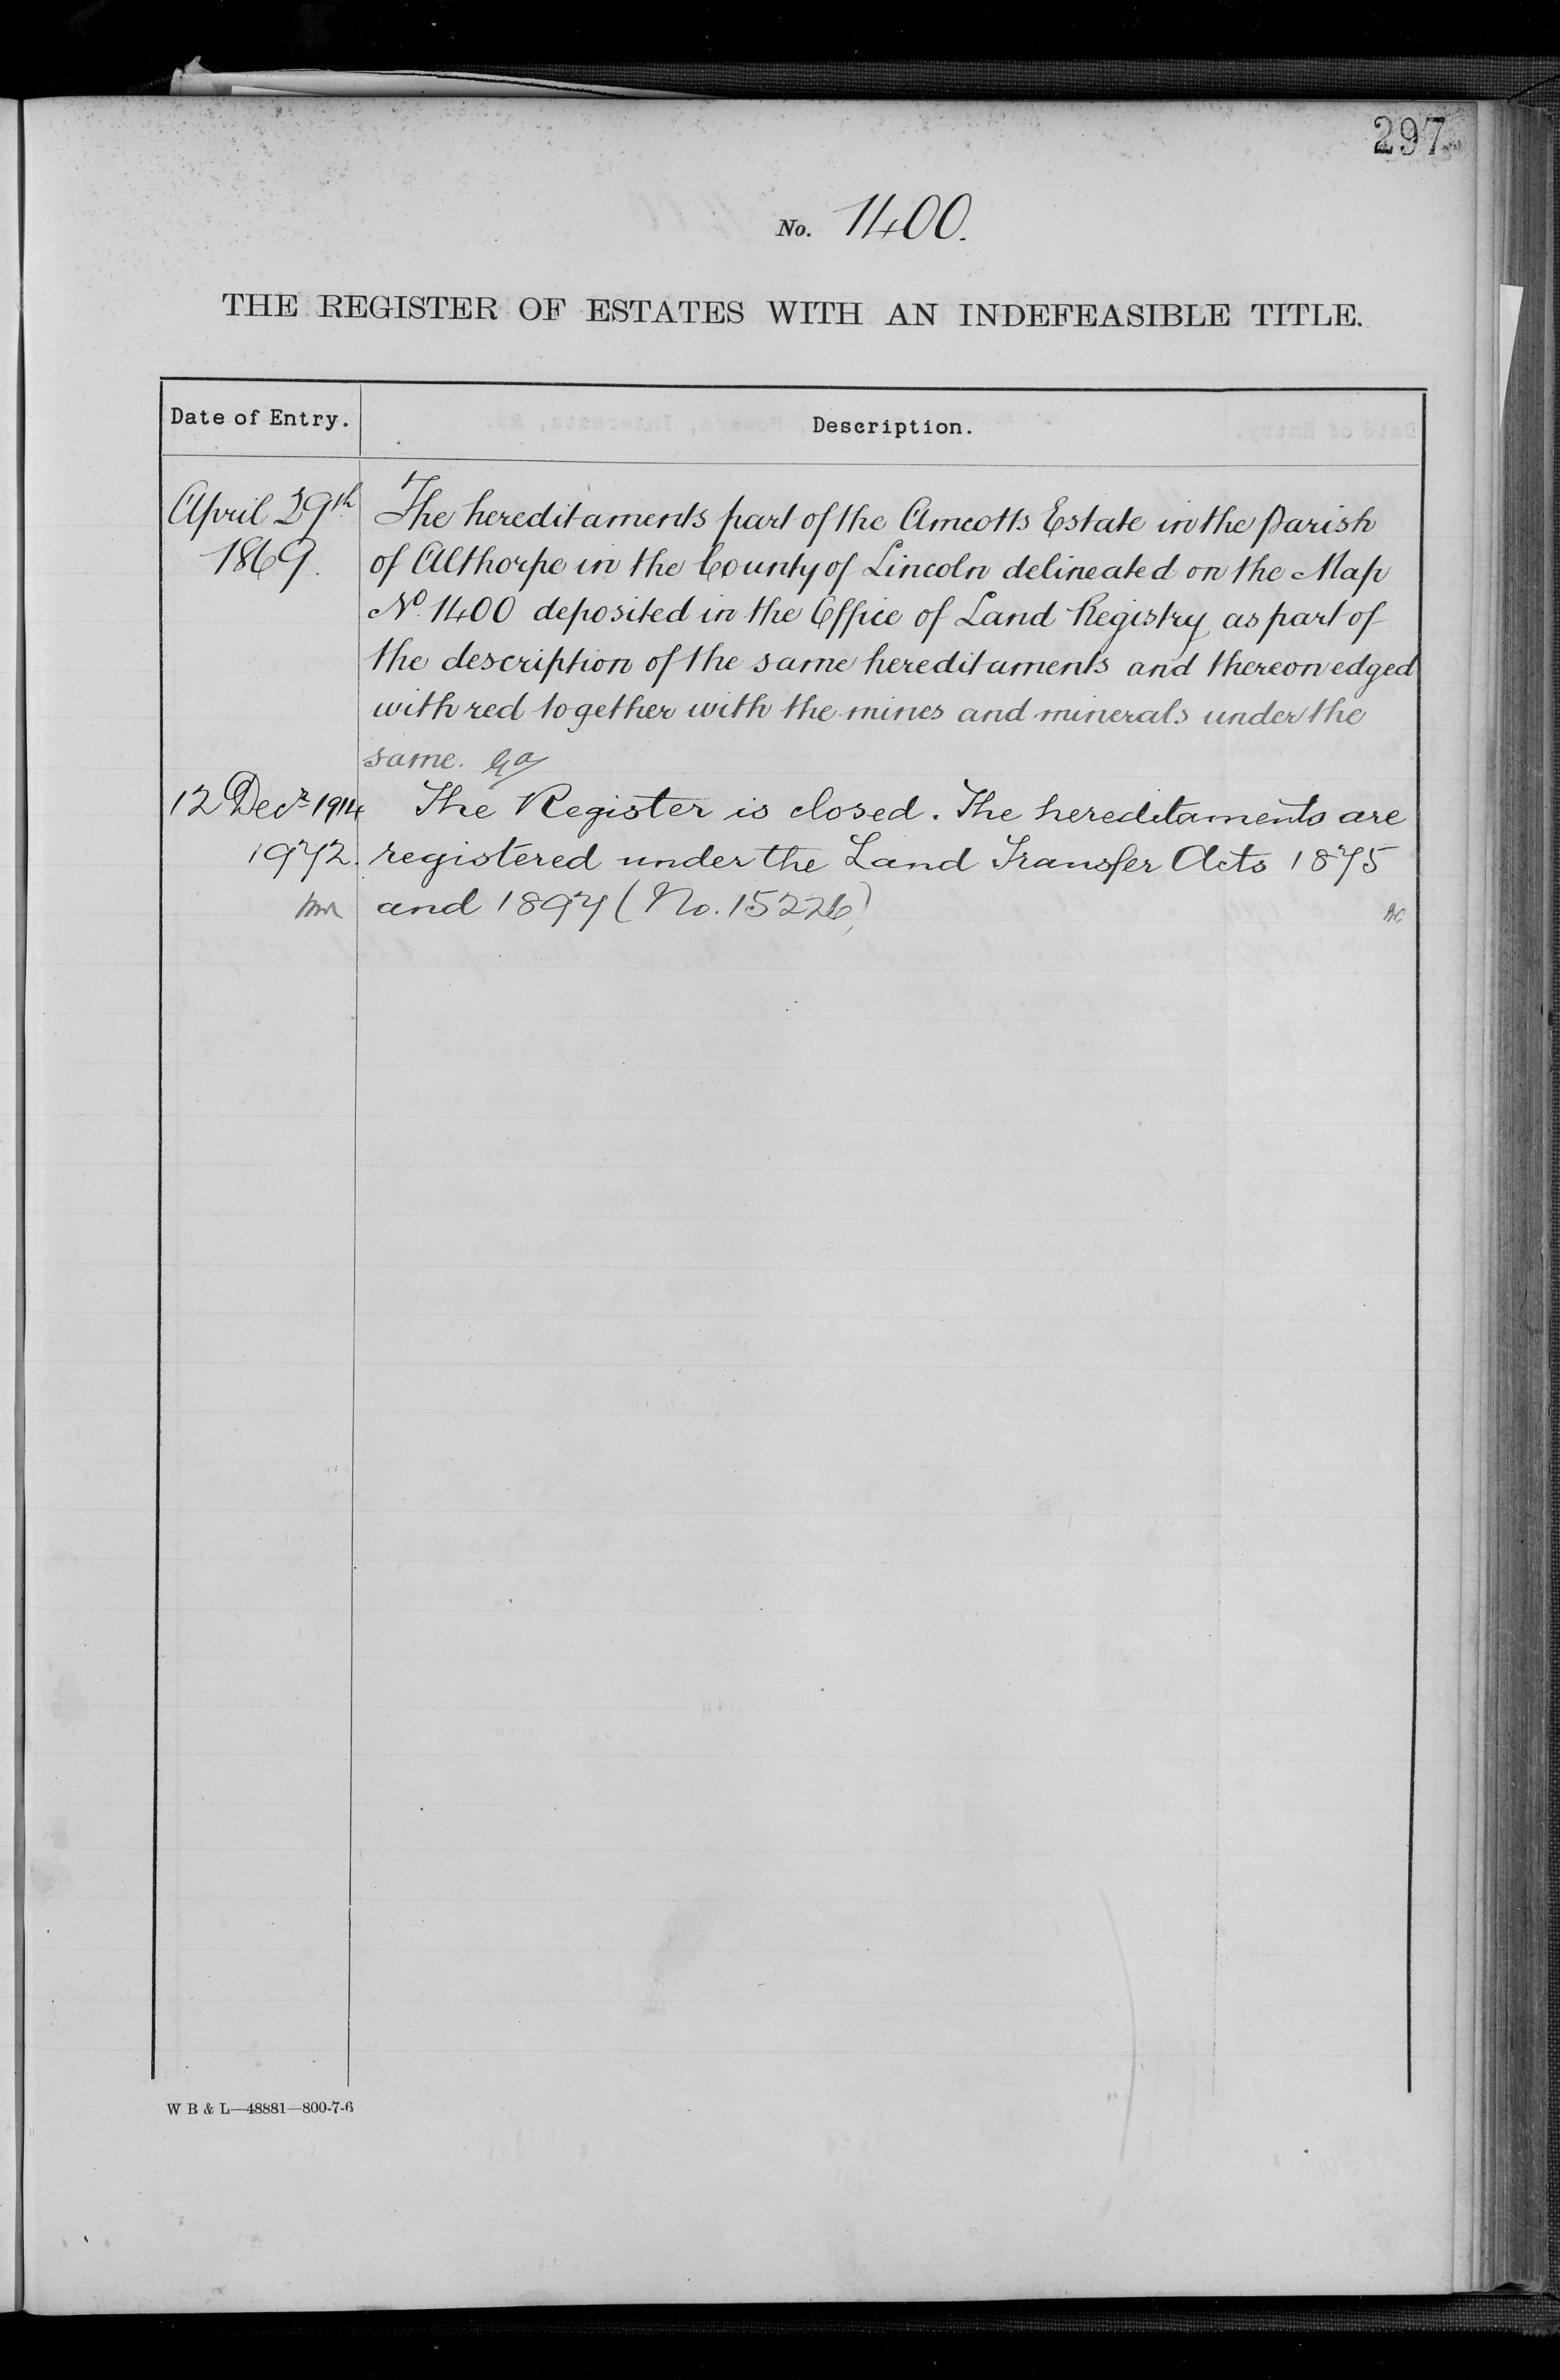 297
No. 1400.
THE REGISTER OF ESTATES WITH AN INDEFEASIBLE TITLE.
Date of Entry. Description.
April 29th The hereditaments part of the Amcotts Estate in the Parish
1869. of Althorpe in the County of Lincoln delineated on the Map
No. 1400 deposited in the Office of Land Registry as part of
the description of the same hereditaments and thereon edged
with red together with the mines and minerals under the
same.
12 Decr 1914 The Register is closed. The hereditaments are
1972. registered under the Land Transfer Acts 1875
and 1897 (No. 15226)
W B & L—48881—800-7-6